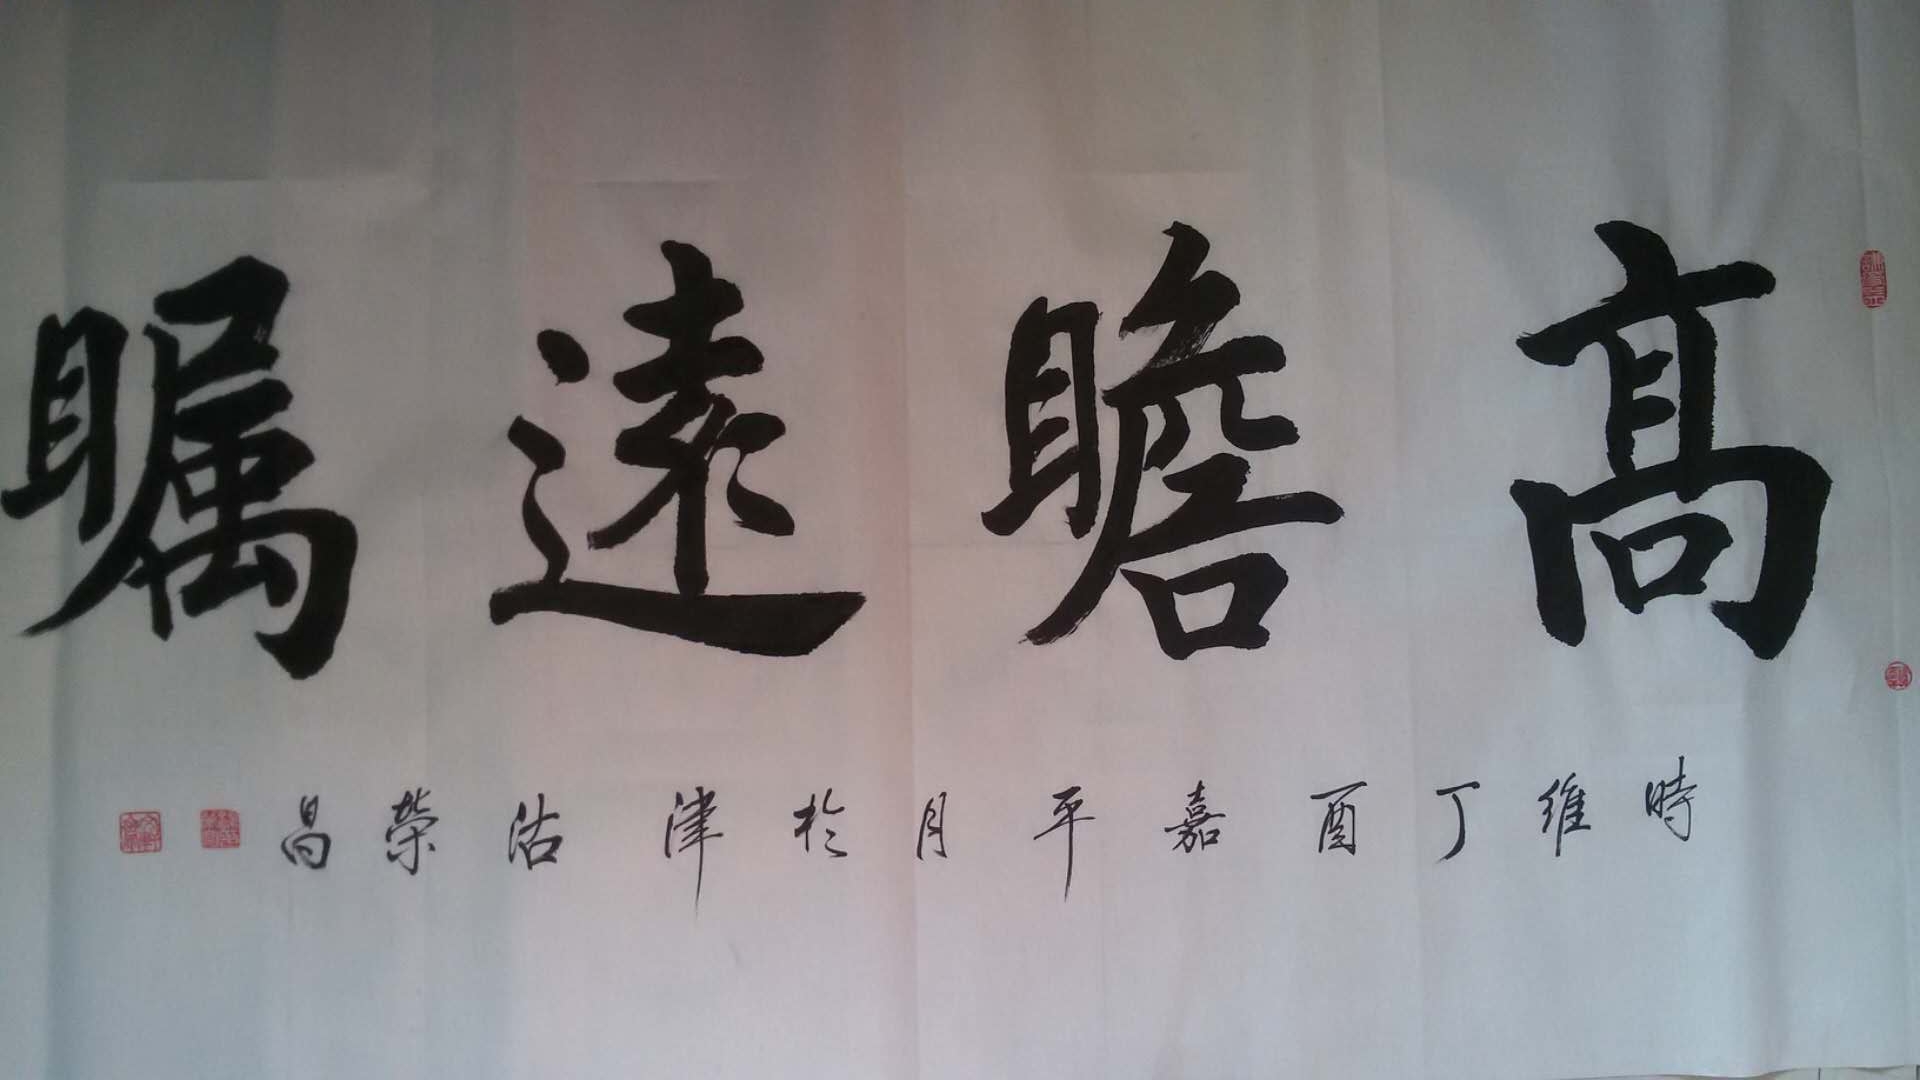 髙瞻遠瞩
時維丁酉嘉平月於津沽榮昌